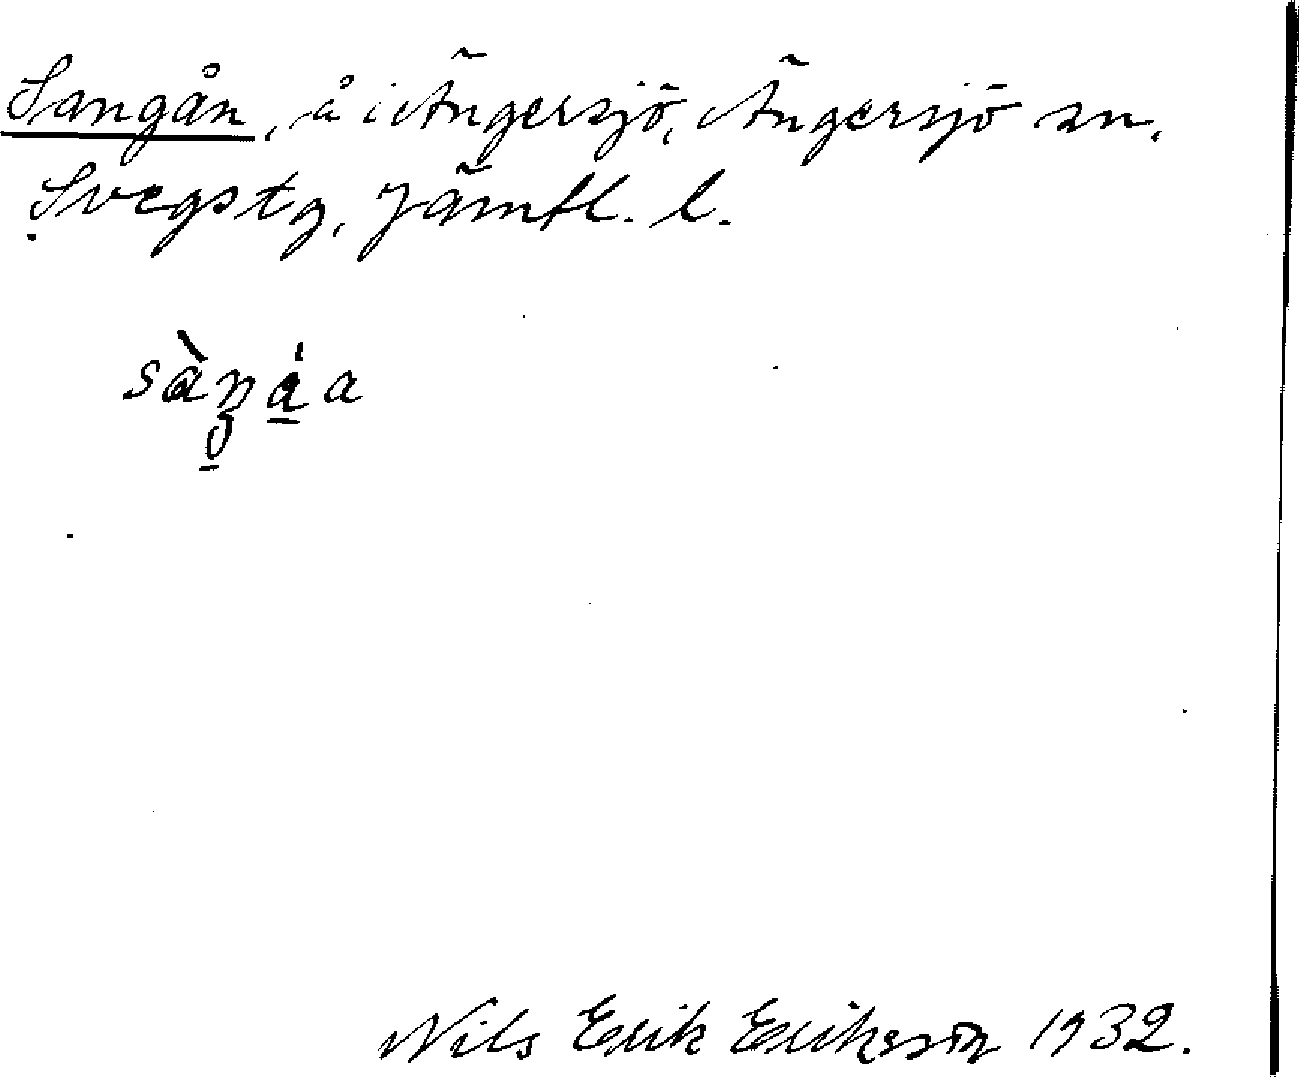 Sangån, å i Ängersjö, Ängersjö sn,
Svegs tg, Jämtl. l.
sàŋa̱a
Nils Erik Eriksson 1932.